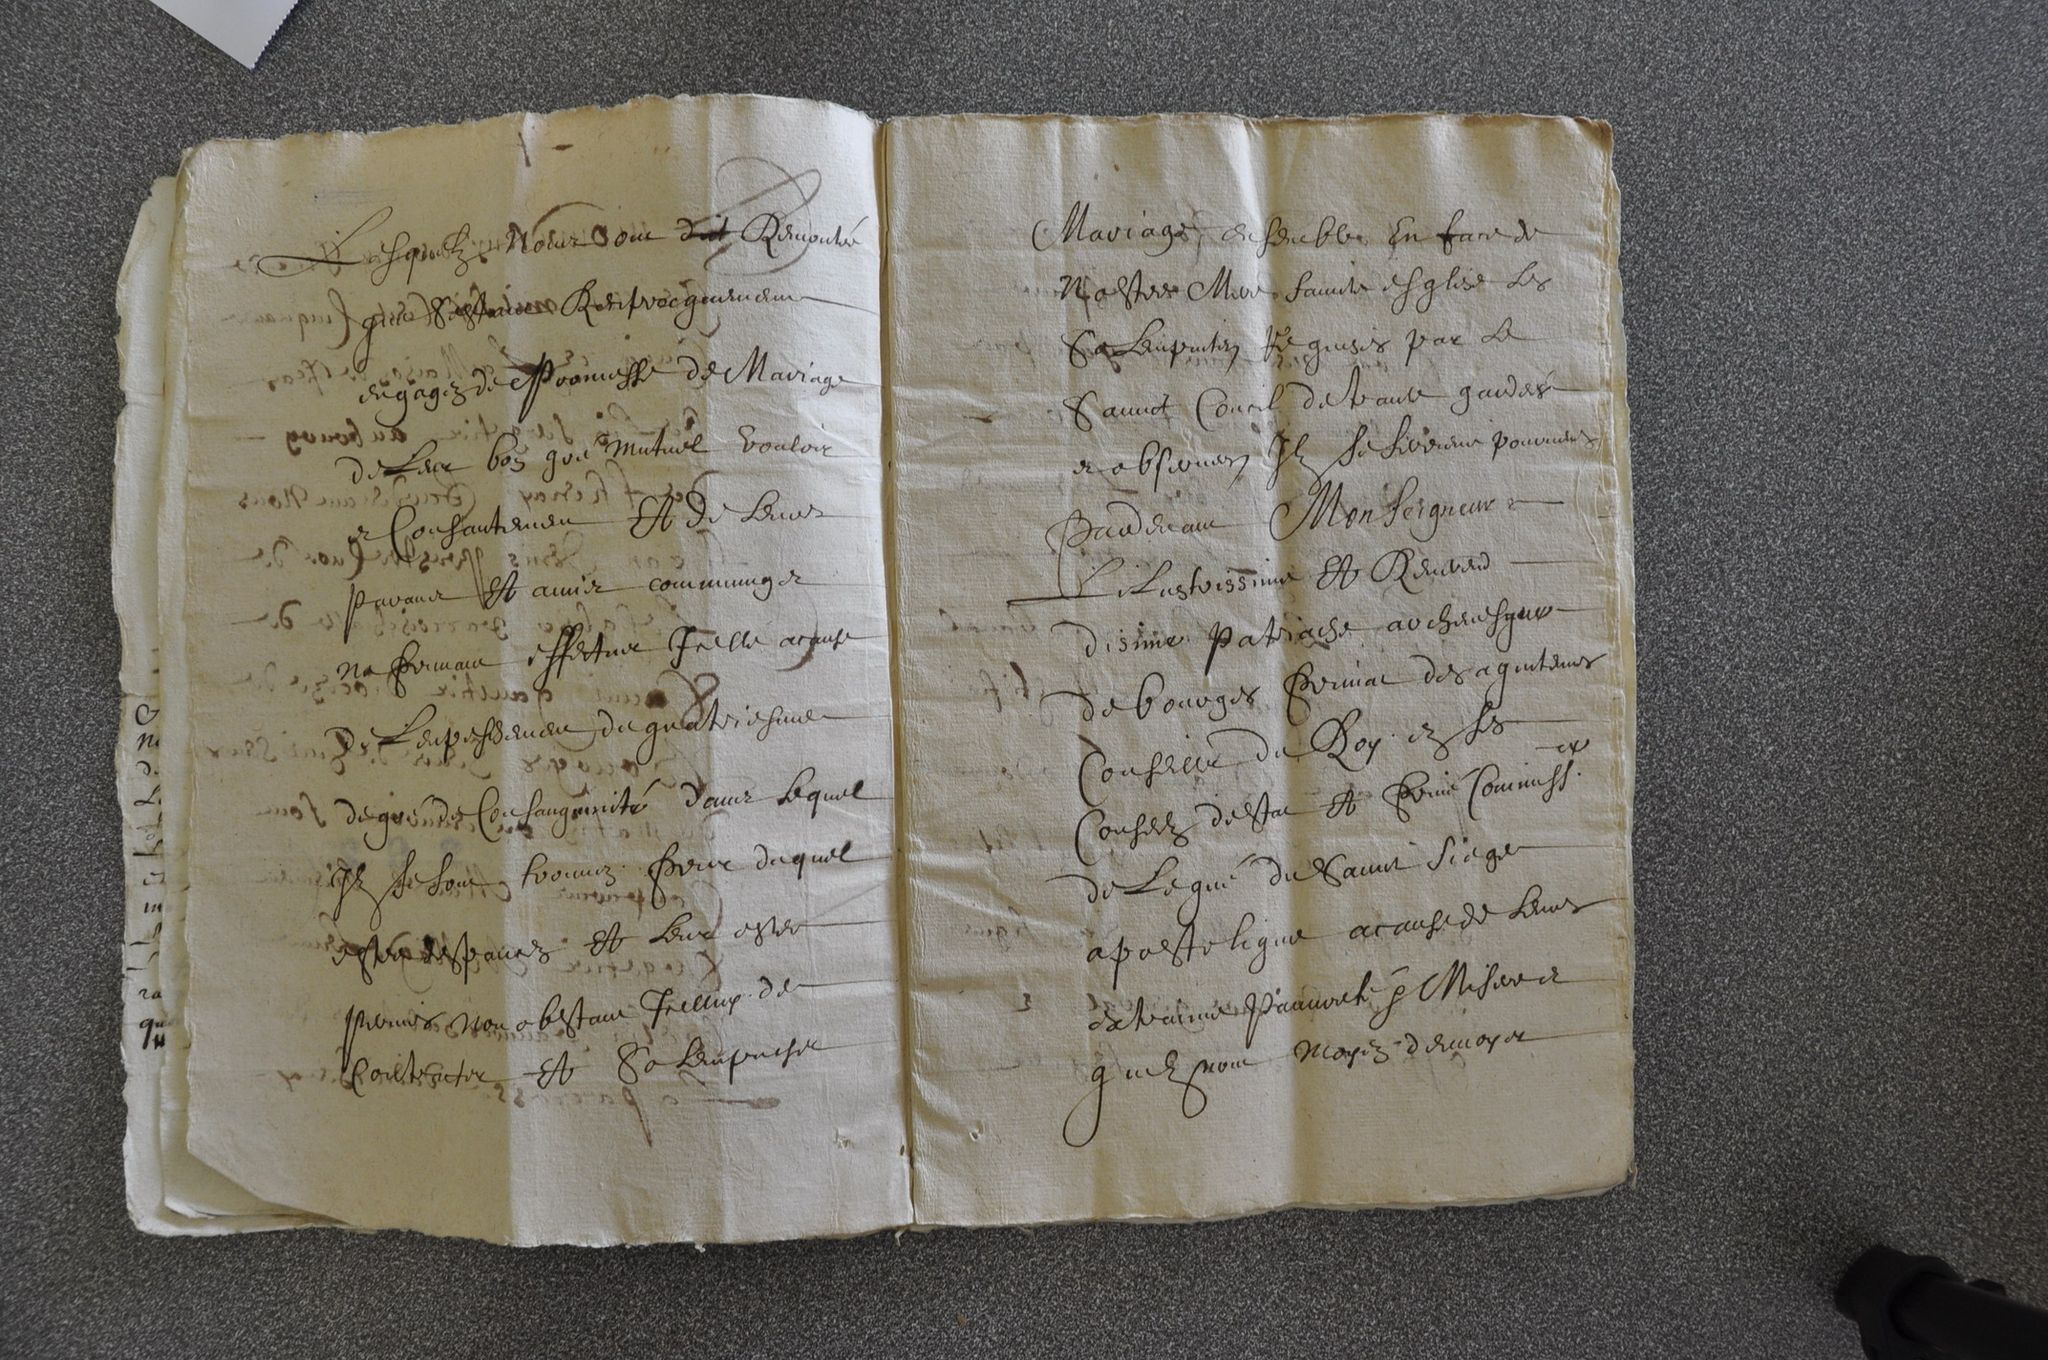 Lesquelz Nous ont dit Remontré
que s'estans Resiprocquement
engagez de Promesse de Mariage
de Leur bon gré mutuel vouloir
et Consantement Et de Leurs
parans Et amis communs et
ne pouvans effectuer Icelle a cause
de L'enpeschement du quatriesme
degré de Consanguinité dans Lequel
Ilz se sont trouvez pour duquel
estre dispancez Et Leur estre
permis non obstant Icelluy de
Contracter Et Solempniser
Mariage ensemble En face de
Nostre Mere saincte esglise Les
Solempnitez Requises par Le
Sainct Concil de trante gardées
et observées Ilz se seroient pourveus
pardevant Monseigneur
L'Ilustrissime Et Reverend
disime Patriache archevesque
de bourges primat des aquitenes
Conseiller du Roy en ses
Conseilz destat Et Commiss.
de Legué du Sainct siege
apostolique a cause de Leurs
extraime Pauvreté et Misere et
quilz nont moyen denvoyer